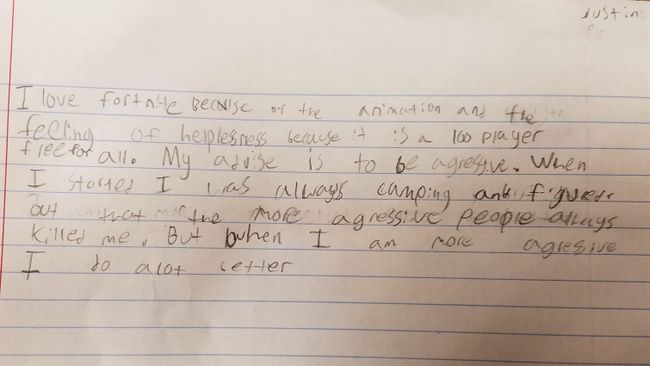 Justin
I love fortnite Because of the animation and the
feeling of helplessness because it is a 100 player
free for all. My advise is to be agressive. When
I started I was always camping and figured
but that the more agressive people always
killed me. But when I am more agressive
I do alot better